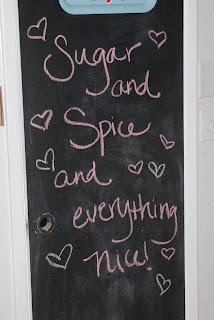 Sugar
and
Spice
and
everything
nice!